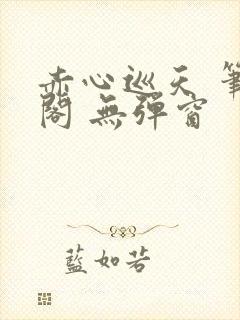 赤心巡天 筆
閣 無彈窗
藍如若